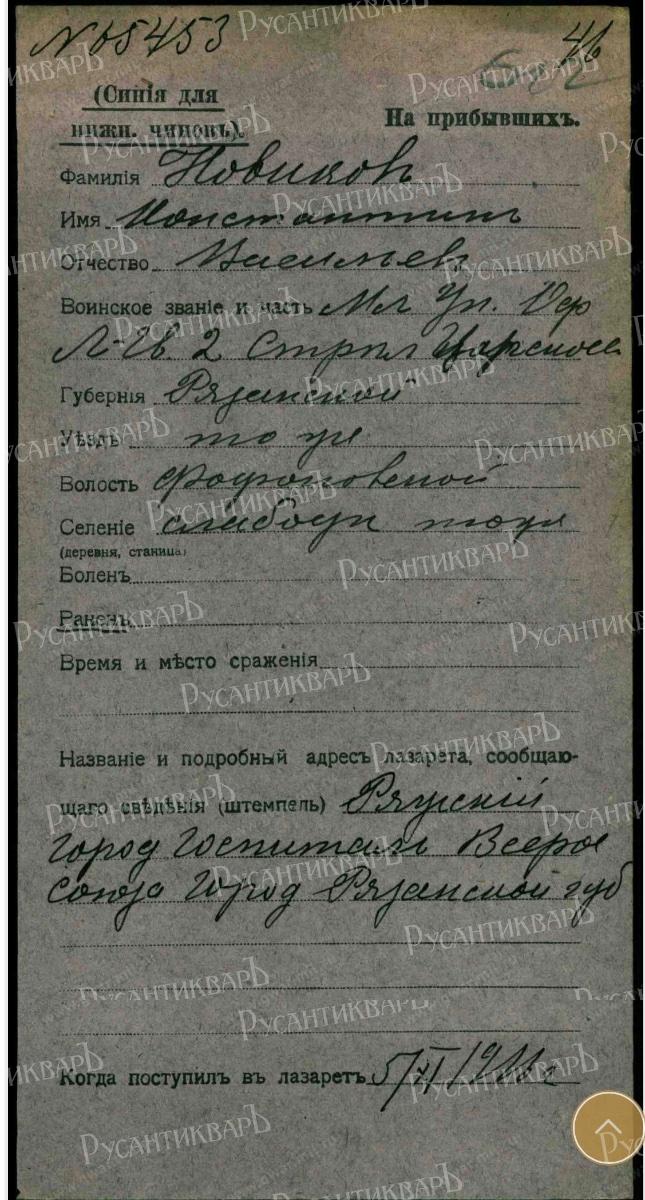 № 5453 46
(Синія для
нижн. чиновъ).
На прибывшихъ.
Фамилія Новиковъ
Имя Константинъ
Отчество Васильевъ
Воинское званіе и часть Мл Ун. Оф
Л-Гв. 2 Стрѣл Царскосел
Губернія Рязанской
Уѣздъ
Волость
Селеніе слободы
(деревня, станица)
Боленъ
Раненъ
Время и мѣсто сраженія
Названіе и подробный адресъ лазарета, сообщаю-
щаго свѣдѣнія (штемпель) Ряжскій
город Госпиталь Всерос
союза Город Рязанской губ
Когда поступилъ въ лазаретъ 5/XI
РусантикварЪ